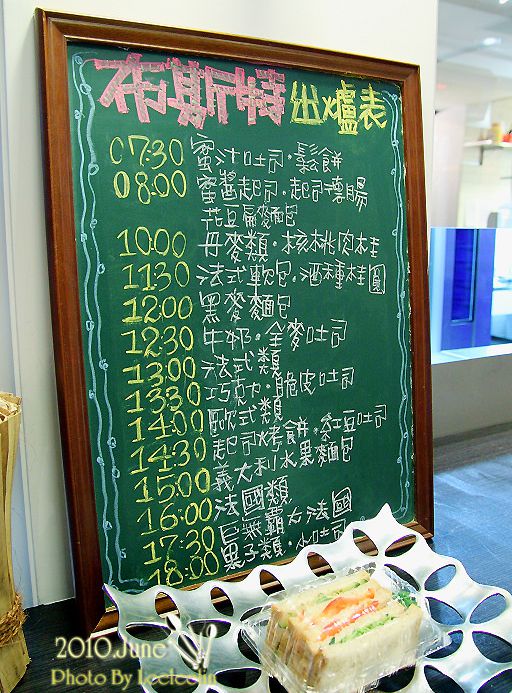 布斯特出爐表
07:30 蜜汁吐司·鬆餅
08:00 蜜醬起司·起司德腸
花豆扁麵包
10:00 丹麥類·核桃肉桂
11:30 法式軟包·酒種桂圓
12:00 黑麥麵包
12:30 牛奶·全麥吐司
13:00 法式類
13:30 巧克力·脆皮吐司
14:00 歐式類
14:30 起司烤餅·紅豆吐司
15:00 義大利水果麵包
16:00 法國類
17:30 巨無霸大法國
18:00 果子類·小吐司
2010.June
Photo By